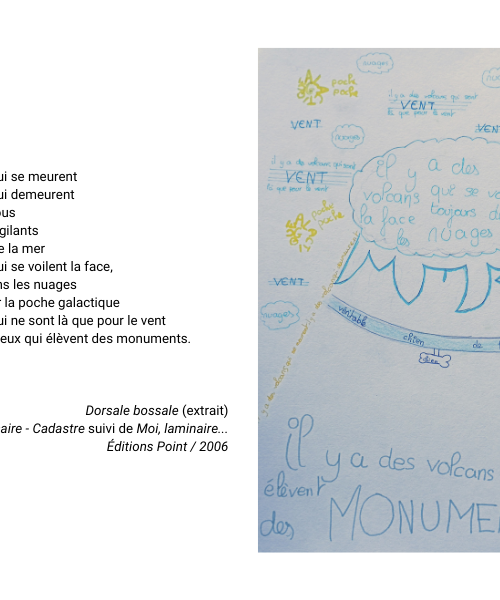 ui se meurent
ui demeurent
ous
gilants
e la mer
ui se voilent la face,
ns les nuages
r la poche galactique
ui ne sont là que pour le vent
eux qui élèvent des monuments.
Dorsale bossale (extrait)
aire - Cadastre suivi de Moi, laminaire...
Éditions Point / 2006
nuages
poche
poche
il y a des volcans qui sont
VENT
là que pour le vent
VENT
VENT
nuages
il y a des volcans qui sont
VENT
là que pour le vent
il y a des
volcans qui se vo
la face toujours d
les nuages
poche
poche
VENT
nuages
véritable chien de
il y a des volcans
élèvent
des MONUME